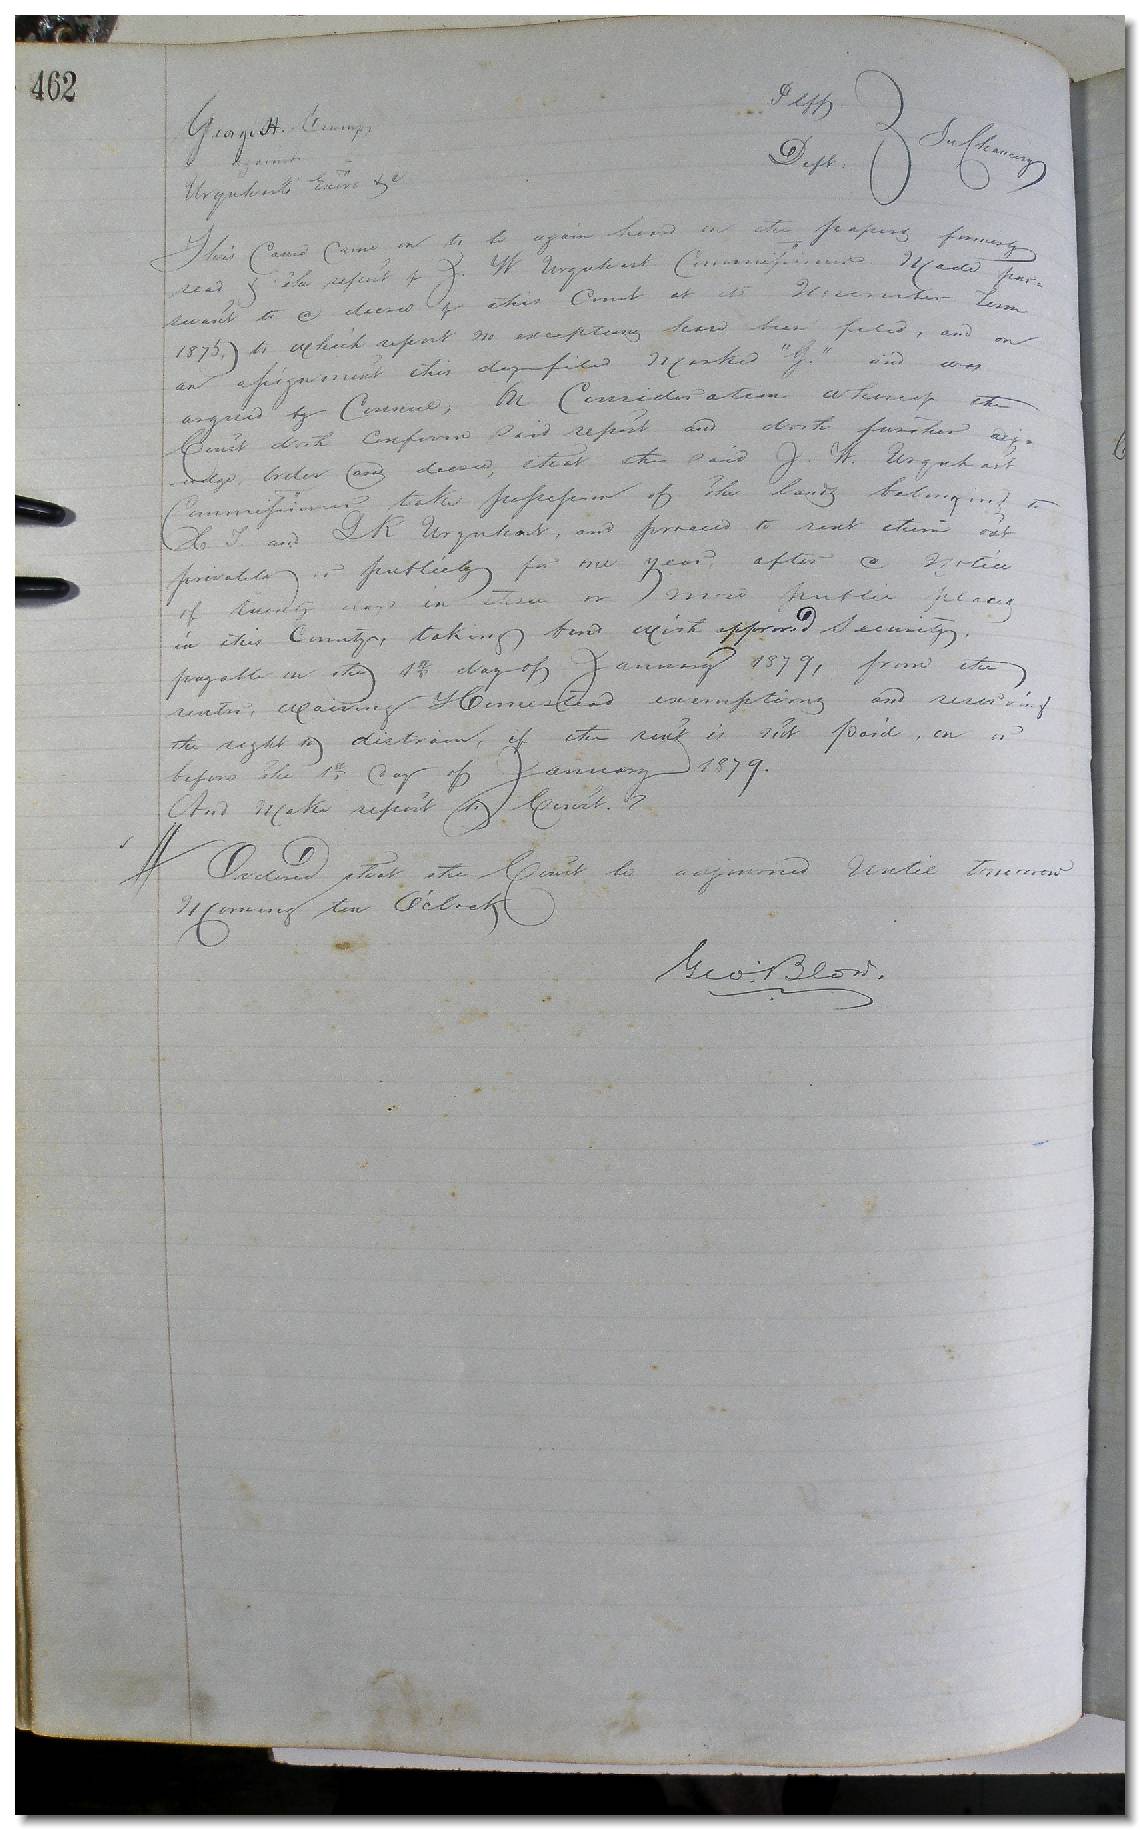 462
George H. Crump Plff
against In Chancery
Urquhart's Exors &c Deft.
This Cause Came on to be again heard on the papers formerly
read & the report of J. W Urquhart Commissioner Made pur-
suant to a decree of this Court at its December term
1875, to which report no exceptions have been filed, and on
an assignment this day filed Marked "G." and was
argued by Counsel, On Consideration whereof the
Court doth Confirm said report and doth further adju-
udge, order and decree, that the said J. W. Urquhart
Commissioner take possession of the lands belonging to
T. and R Urquhart, and proceed to rent them out
privately or publicly for one year, after a Notice
of twenty days in three or more public places
in this County, taking bond with approved Security,
payable on the 1st day of January 1879, from the
renter, waiving Homestead exemptions and reserving
the right to distrain, if the rent is not paid, on or
before the 1st day of January 1879.
And Make report to Court.
Ordered that the Court be adjourned Until tomorrow
Morning ten O'clock
Geo: Blow.